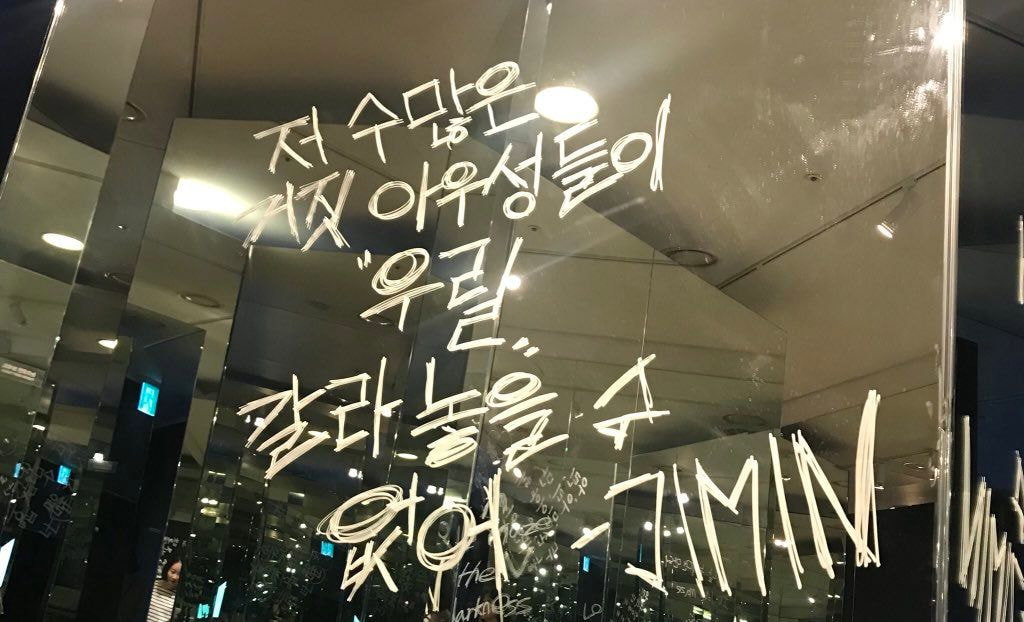 저 수많은
거짓 아우성들이
"우릴"
갈라 놓을 수
없어 - JIMIN
the
darkness